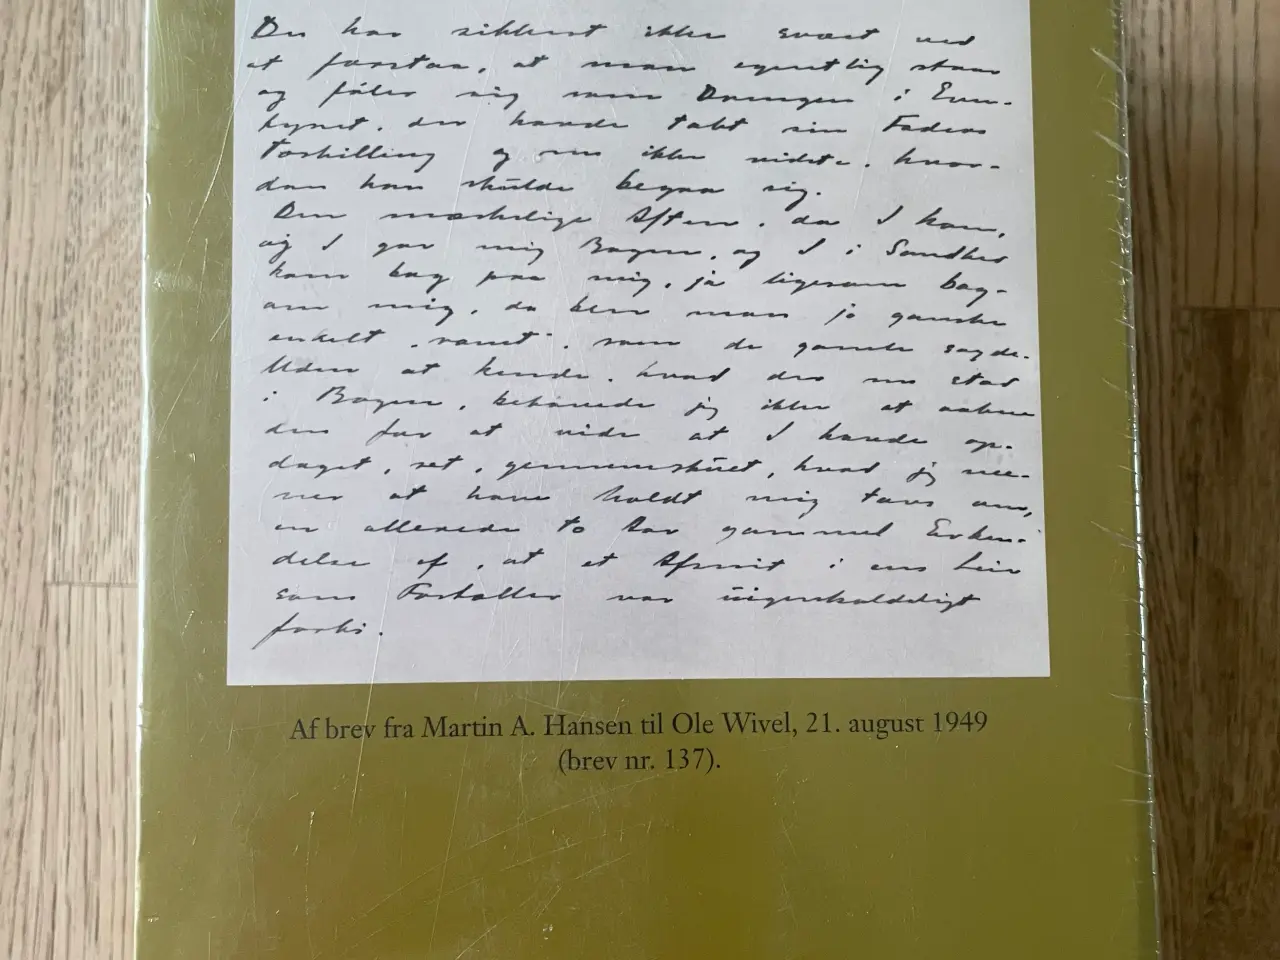 Du har sikkert ikke svært ved
at forstaa, at man egentlig staar
og føler sig som Drengen i Even-
tyret, der havde tabt sin Faders
Toskilling og nu ikke vidste, hvor-
dan han skulde begaa sig.
Den mærkelige Aften, da I kom,
og I gav mig Bogen, og I i Sandhed
kom bag paa mig, ja ligesom bag-
om mig, da blev man jo ganske
enkelt "rami", som de gamle sagde.
Uden at kende, hvad der nu stod
i Bogen, behøvede jeg ikke at aabne
den for at vide at I havde op-
daget, set, gennemskuet, hvad jeg mee-
ner at have holdt mig tavs om,
en allerede to Aar gammel Erken-
delse af, at et Afsnit i ens Liv
som Fortæller var uigenkaldeligt
forbi.
Af brev fra Martin A. Hansen til Ole Wivel, 21. august 1949
(brev nr. 137).